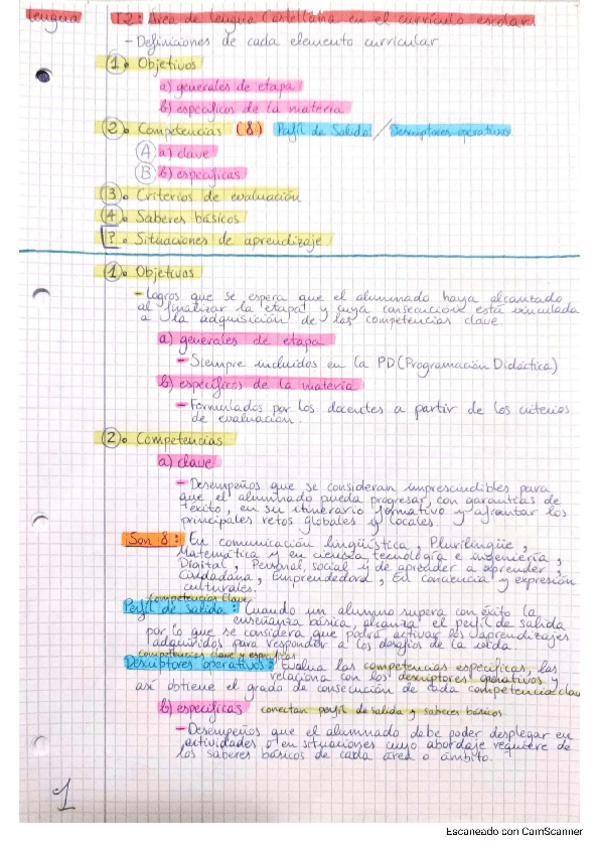 Lengua
T2: Área de Lengua Castellana en el currículo escolar
- Definiciones de cada elemento curricular
1. Objetivos
a) generales de etapa
b) específicos de la materia
2. Competencias (8) Perfil de Salida / Descriptores operativos
A a) clave
B b) específicas
3. Criterios de evaluación
4. Saberes básicos
?. Situaciones de aprendizaje
1. Objetivos
- Logros que se espera que el alumnado haya alcanzado
al finalizar la etapa y cuya consecución está vinculada
a la adquisición de las competencias clave.
a) generales de etapa
- Siempre incluidos en la PD (Programación Didáctica)
b) específicos de la materia
- Formulados por los docentes a partir de los criterios
de evaluación.
2. Competencias
a) clave
- Desempeños que se consideran imprescindibles para
que el alumnado pueda progresar, con garantías de
éxito, en su itinerario formativo y afrontar los
principales retos globales y locales.
Son 8: En comunicación lingüística, Plurilingüe,
Matemática y en ciencia, tecnología e ingeniería,
Digital, Personal, social y de aprender a aprender,
Ciudadana, Emprendedora, En conciencia y expresión
culturales.
Competencias Clave
Perfil de salida: Cuando un alumno supera con éxito la
enseñanza básica, alcanza el perfil de salida
por lo que se considera que podrá activar los aprendizajes
adquiridos para responder a los desafíos de la vida.
Competencias clave y específicas
Descriptores operativos: Evalua las competencias específicas, las
relaciona con los descriptores operativos y
así obtiene el grado de consecución de cada competencia clave
b) específicas conectan perfil de salida y saberes básicos
- Desempeños que el alumnado debe poder desplegar en
actividades o en situaciones cuyo abordaje requiere de
los saberes básicos de cada área o ámbito.
1
Escaneado con CamScanner